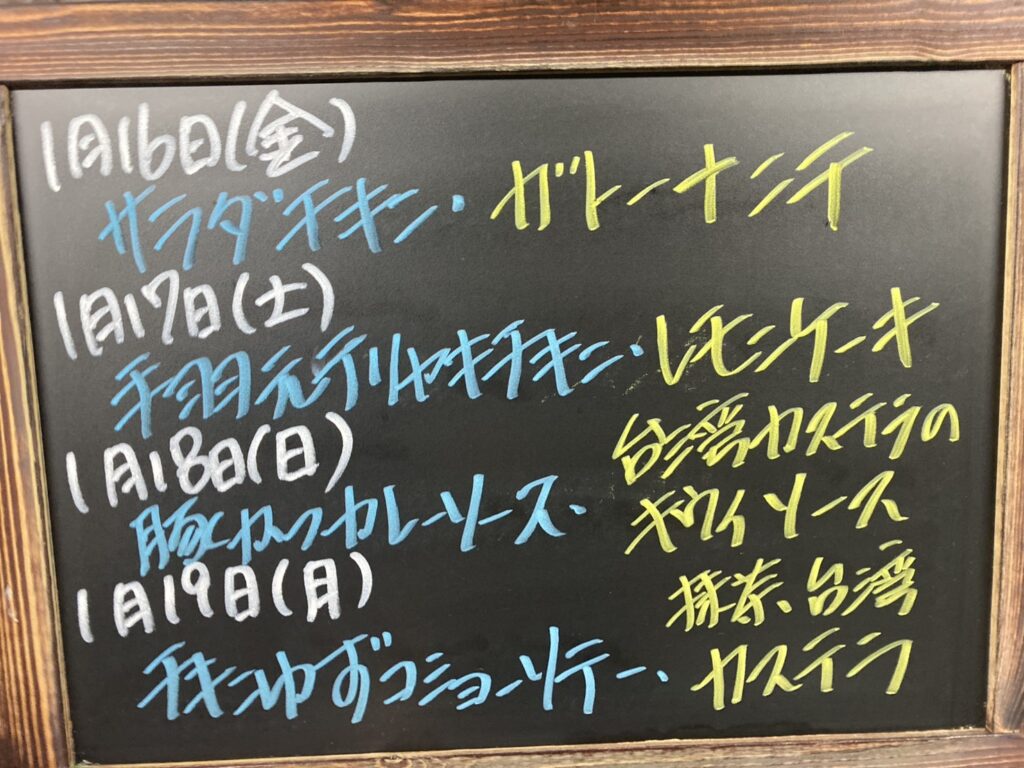 1月16日(金)
サラダチキン・ガトーナンテ
1月17日(土)
手羽元テリヤキチキン・レモンケーキ
1月18日(日)
豚かつカレーソース、台湾カステラの
キウイソース
1月19日(月)
チキンゆずコショーソテー、抹茶、台湾
カステラ